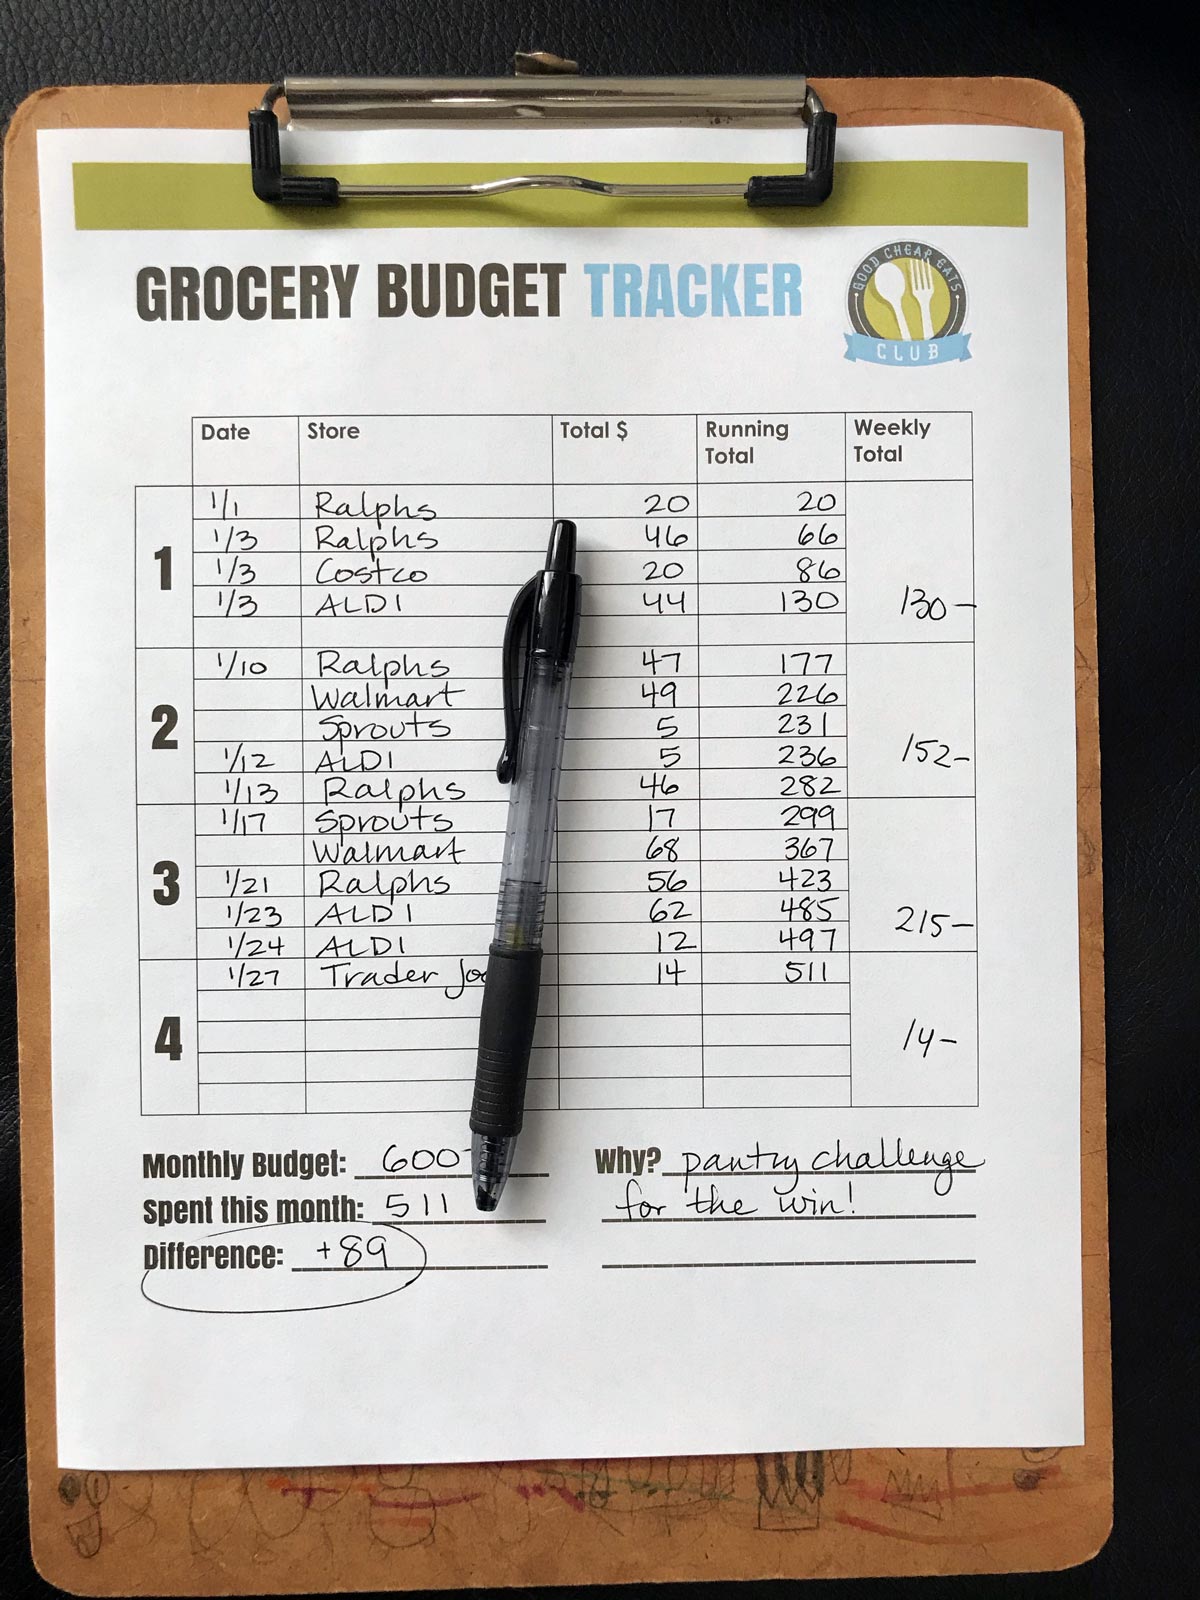 GROCERY BUDGET TRACKER
GOOD CHEAP EATS
CLUB
Date Store Total $ Running Total Weekly Total
1
1/1 Ralphs 20 20
1/3 Ralphs 46 66
1/3 Costco 20 86
1/3 ALDI 44 130 130-
2
1/10 Ralphs 47 177
Walmart 49 226
Sprouts 5 231
1/12 ALDI 5 236 152-
1/13 Ralphs 46 282
3
1/17 Sprouts 17 299
Walmart 68 367
1/21 Ralphs 56 423
1/23 ALDI 62 485 215-
1/24 ALDI 12 497
4
1/27 Trader Joe 14 511
14-
Monthly Budget: 600- Why? pantry challenge
Spent this month: 511 for the win!
Difference: +89